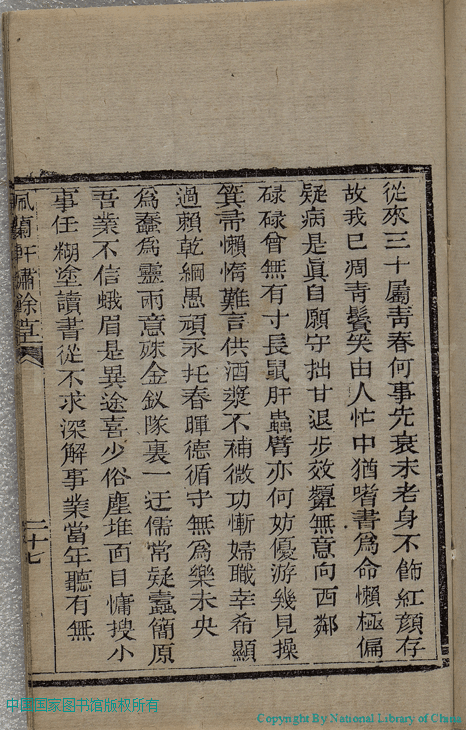 從來三十屬靑春何事先衰未老身不飾紅顏存
故我已凋靑鬢笑由人忙中猶嗜書爲命懶極偏
疑病是眞自願守拙甘退步效顰無意向西鄰
碌碌曾無有寸長鼠肝蟲臂亦何妨優游幾見操
箕帚懶惰難言供酒漿不補微功慚婦職幸希顯
過賴乾綱愚頑永托春暉德循守無爲樂未央
爲蠢爲靈兩意殊金釵隊裏一迂儒常疑蠹簡原
吾業不信蛾眉是異途喜少俗塵堆面目慵搜小
事任糊塗讀書從不求深解事業當年聽有無
蘭軒繡餘草
二十七
中国国家图书馆版权所有
Copyright By National Library of China